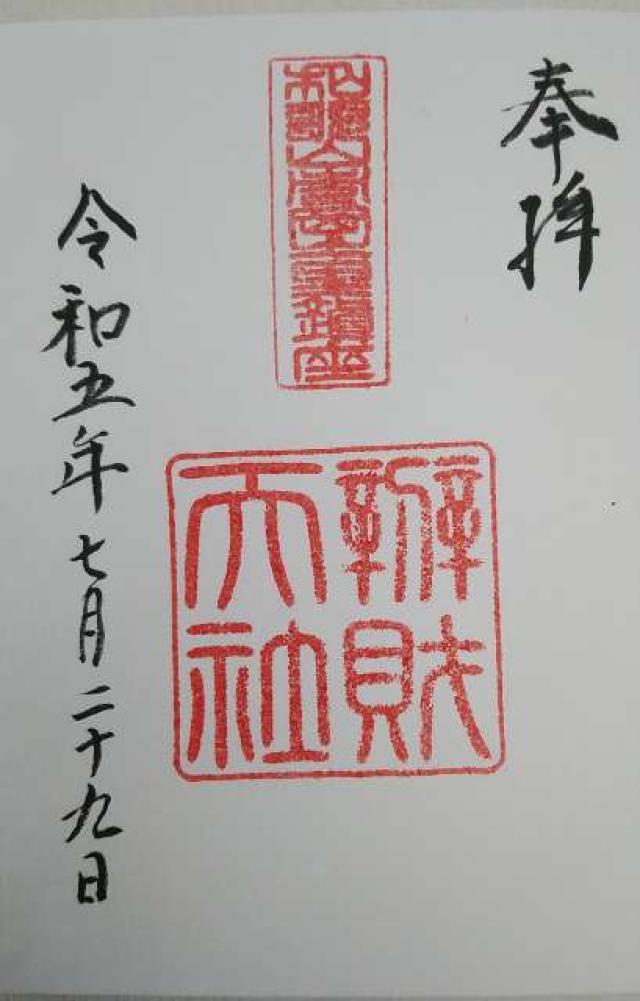 奉拝
辦財
天社
令和五年七月二十九日